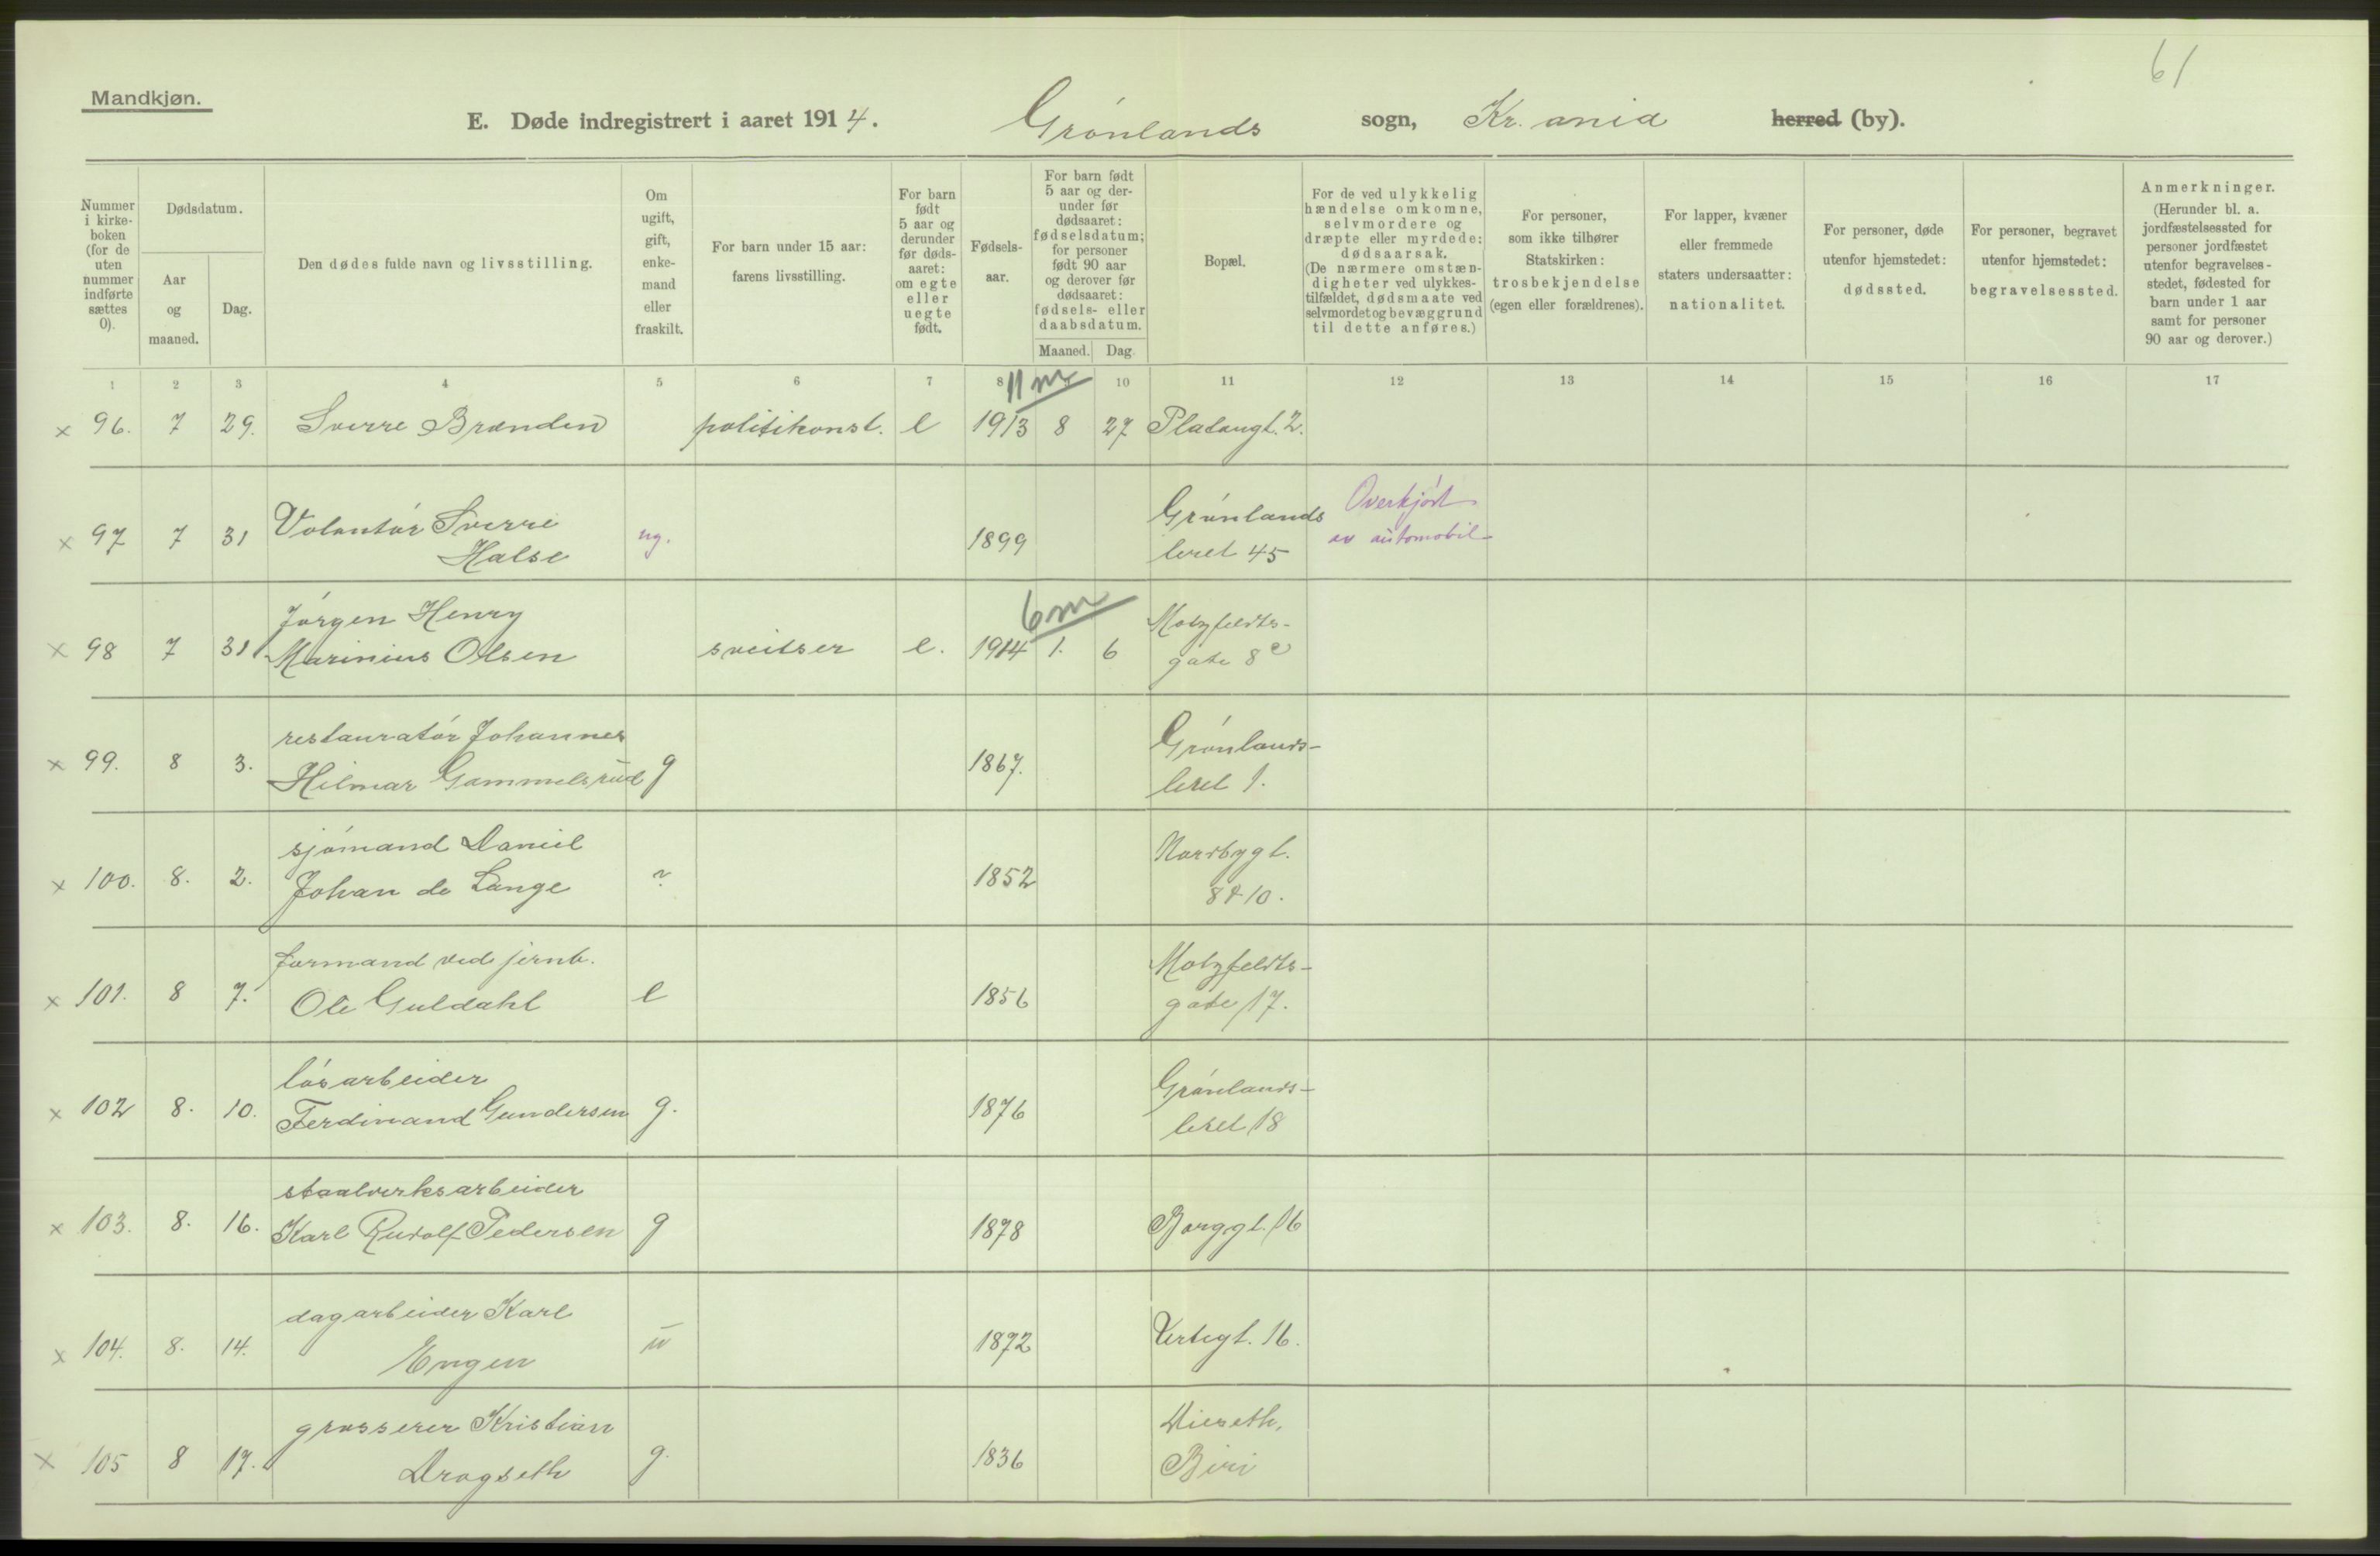 61
Mandkjøn.
E. Døde indregistrert i aaret 1914. Grønlands sogn, Kr.ania herred (by).
Nummer i kirke-boken (for de uten nummer indførte sættes 0).
Dødsdatum.
Aar og maaned.
Dag.
Den dødes fulde navn og livsstilling.
Om ugift, gift, enke-mand eller fraskilt.
For barn under 15 aar: farens livsstilling.
For barn født 5 aar og derunder før døds-aaret: om egte eller uegte født.
Fødsels-aar.
For barn født 5 aar og der-under før dødsaaret: fødselsdatum; for personer født 90 aar og derover før dødsaaret: fødsels- eller daabsdatum.
Maaned. Dag.
Bopæl.
For de ved ulykkelig hændelse omkomne, selvmordere og dræpte eller myrdede: dødsaarsak. (De nærmere omstæn-digheter ved ulykkes-tilfældet, dødsmaate ved selvmordet og bevæggrund til dette anføres.)
For personer, som ikke tilhører Statskirken: trosbekjendelse (egen eller forældrenes).
For lapper, kvæner eller fremmede staters undersaatter: nationalitet.
For personer, døde utenfor hjemstedet: dødssted.
For personer, begravet utenfor hjemstedet: begravelsessted.
Anmerkninger. (Herunder bl. a. jordfæstelsessted for personer jordfæstet utenfor begravelses-stedet, fødested for barn under 1 aar samt for personer 90 aar og derover.)
1 2 3 4 5 6 7 8 10 11 12 13 14 15 16 17
11 m
× 96. 7 29. Sverre Brænden politikonst. e 1913 8 27 Platougt. 2.
× 97 7 31 Volontør Sverre Halse ug. 1899 Grønlands leret 45 Overkjørt av automobil
6 m
× 98 7 31 Jørgen Henry Marinius Olsen sveitser e. 1914 1. 6 Motzfeldts-gate 8 c
× 99. 8 3. restauratør Johannes Hilmar Gammelsrud g 1867. Grønlands-leret 1.
× 100. 8. 2. sjømand Daniel Johan de Lange ? 1852 Norbygt. 8 & 10.
× 101. 8 7. formand ved jernb. Ole Guldahl e 1856 Motzfeldts-gate 17.
× 102 8. 10. løsarbeider Ferdinand Gundersen g. 1876 Grønlands-leret 18
× 103. 8. 16. staalverksarbeider Karl Rudolf Pedersen g 1878 Borggt 16
× 104. 8. 14. dagarbeider Karl Engen u 1872 Vertsgt. 16.
× 105 8 17. grosserer Kristian Dragseth g. 1836 Biri